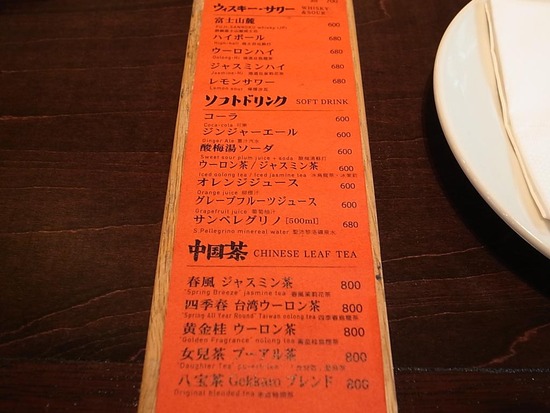 ウィスキー・サワー WHISKY & SOUR
富士山麓 600
ハイボール 600
ウーロンハイ 680
ジャスミンハイ 680
レモンサワー 680
Lemon sour
ソフトドリンク SOFT DRINK
コーラ 600
Coca-cola 可樂
ジンジャーエール 600
Ginger Ale
酸梅湯ソーダ 600
Sweet sour plum juice + soda
ウーロン茶/ジャスミン茶 600
Iced oolong tea / Iced jasmine tea
オレンジジュース 600
Orange juice
グレープフルーツジュース 600
Grapefruit juice
サンペレグリノ [500ml] 680
S.Pellegrino minereal water
中国茶 CHINESE LEAF TEA
春風 ジャスミン茶 800
"Spring Breeze" jasmine tea 春風茉莉花茶
四季春 台湾ウーロン茶 800
"Spring All Year Round" Taiwan oolong tea
黄金桂 ウーロン茶 800
"Golden Fragrance" oolong tea
女児茶 プーアル茶 800
"Daughter Tea"
八宝茶 Gekkam ブレンド 800
Original blended tea